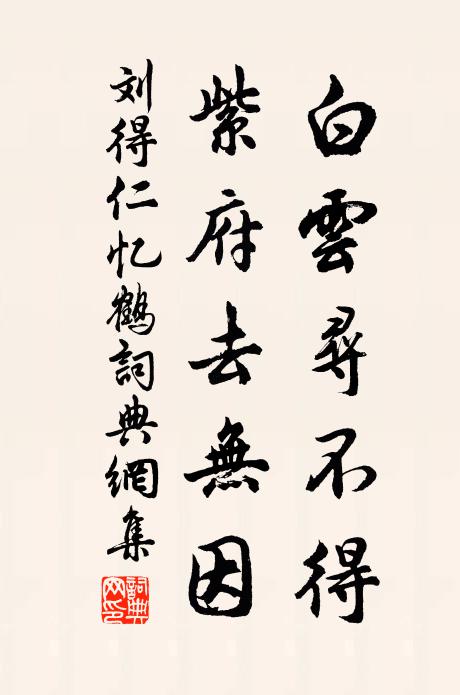 白雲尋不得
紫府去無因
刘得仁忆鶴詞典網集
詞典
网印